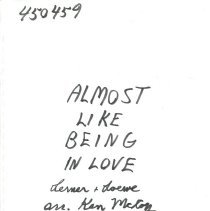 450459
ALMOST
LIKE
BEING
IN LOVE
Lerner + Loewe
arr. Ken McCoy